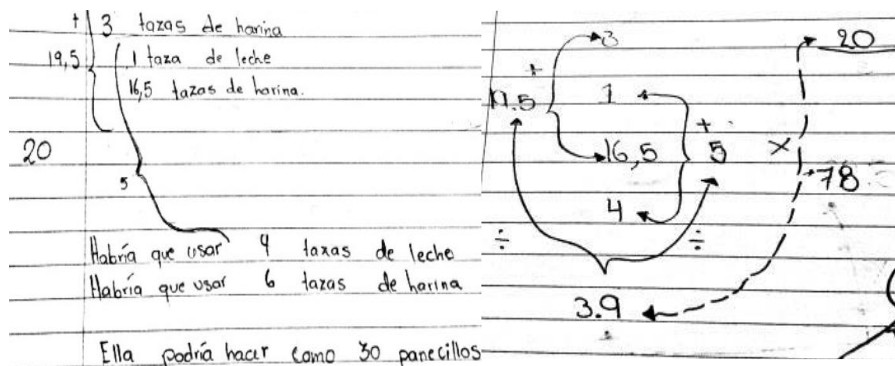 + 3 tazas de harina
19,5 1 taza de leche
16,5 tazas de harina.
20
5
Habría que usar 4 tazas de leche
Habría que usar 6 tazas de harina
Ella podría hacer como 30 panecillos
3 20
+
19.5 1
+
16,5 5 x
78
4
÷ ÷
3.9